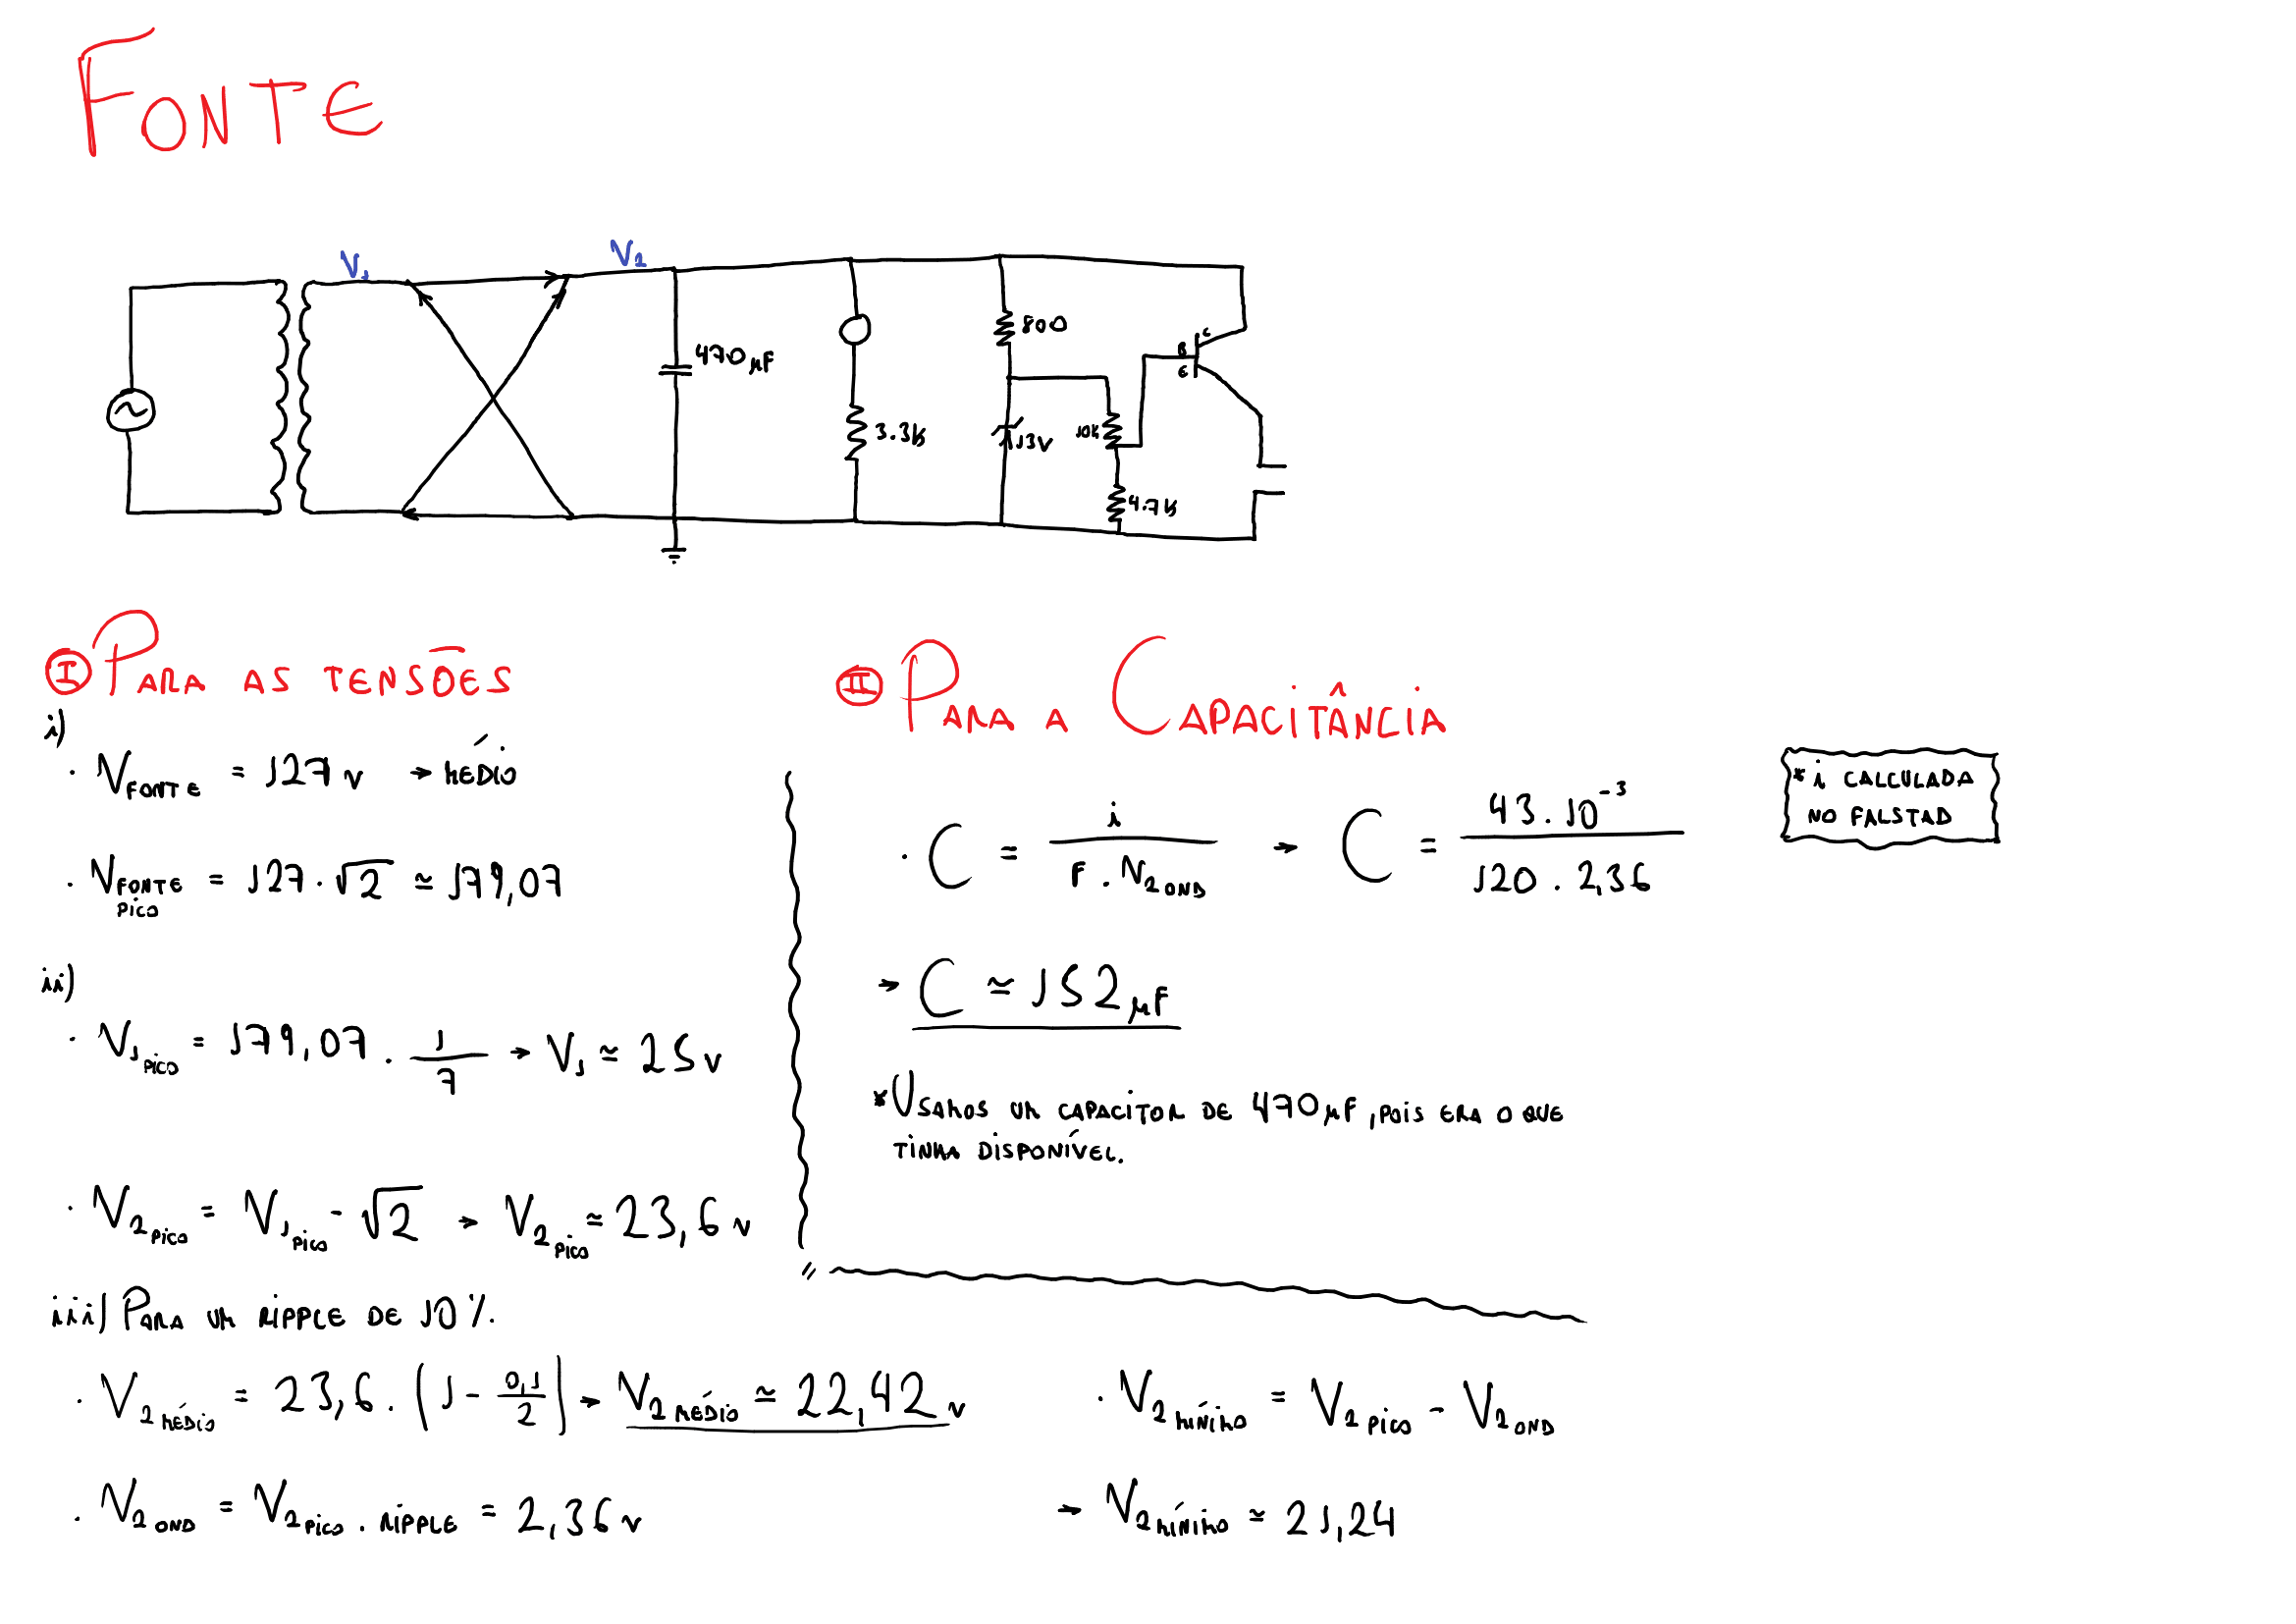 FONTE
V₁
V₂
470 µF
3.3k
800
13V
10K
4.7k
B
C
E
I PARA AS TENSÕES
i)
· V FONTE = 127 V → MÉDIO
· V FONTE PICO = 127 · √2 ≃ 179,07
ii)
· V₁ PICO = 179,07 · 1/7 → V₁ ≃ 25 V
· V₂ PICO = V₁ PICO - √2 → V₂ PICO ≃ 23,6 V
iii) PARA UM RIPPLE DE 10%.
· V₂ MÉDIO = 23,6 · (1 - 0,1/2) → V₂ MÉDIO ≃ 22,42 V
· V₂ OND = V₂ PICO . RIPPLE = 2,36 V
· V₂ MÍNIMO = V₂ PICO - V₂ OND
→ V₂ MÍNIMO ≃ 21,24
II PARA A CAPACITÂNCIA
· C = i / F . V₂ OND → C = 43 . 10⁻³ / 120 . 2,36
→ C ≃ 152 µF
* USAMOS UM CAPACITOR DE 470 µF, POIS ERA O QUE
TINHA DISPONÍVEL.
* i CALCULADA
NO FALSTAD